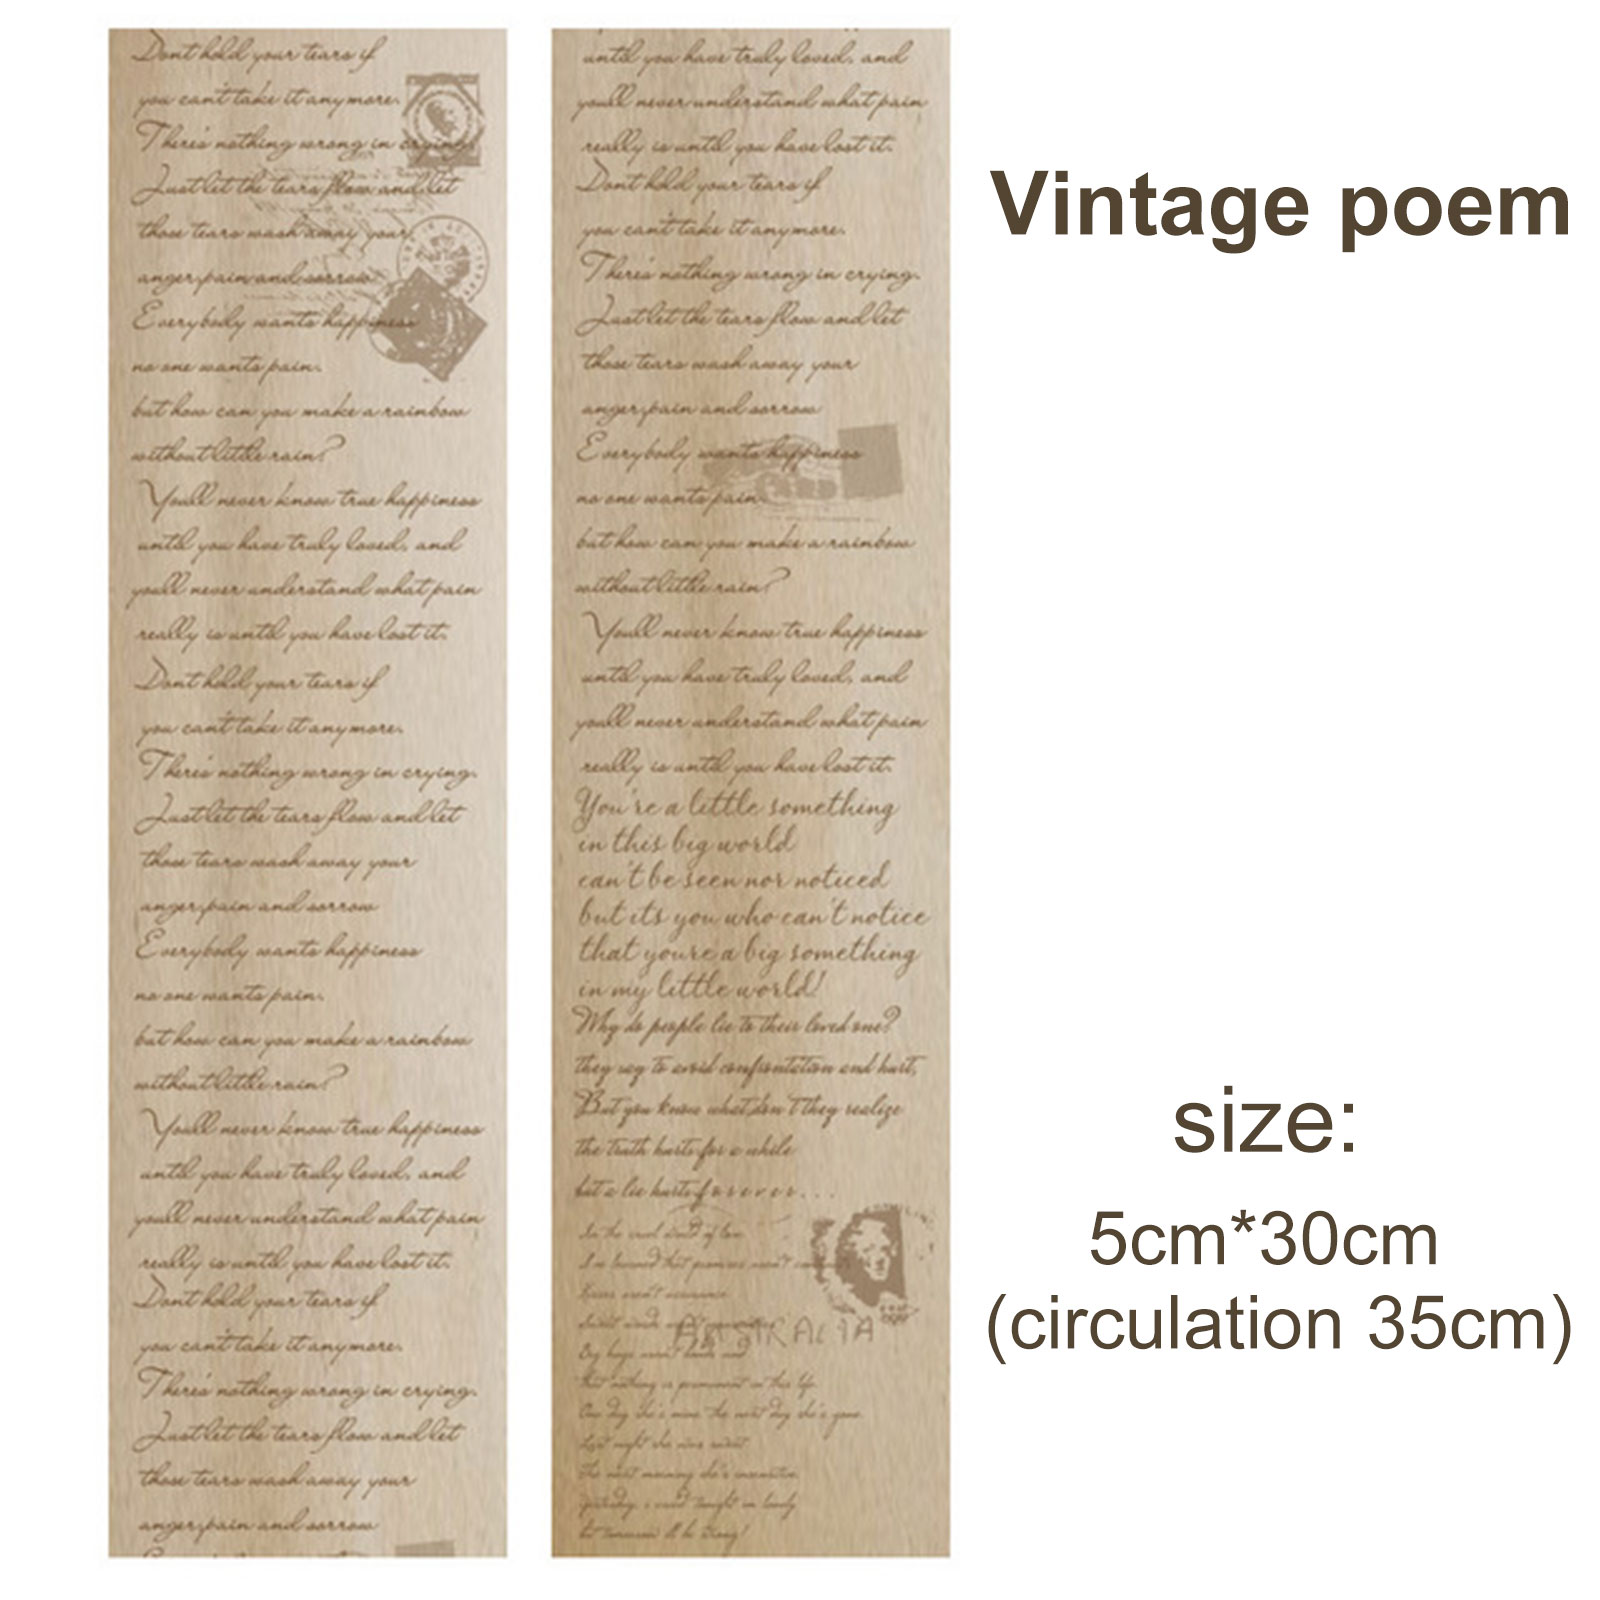 Dont hold your tears if
you can't take it any more.
There's nothing wrong in crying.
Just let the tears flow and let
those tears wash away your
anger,pain and sorrow
Everybody wants happiness
no one wants pain.
but how can you make a rainbow
without little rain?
Youll never know true happiness
until you have truly loved, and
youll never understand what pain
really is until you have lost it.
Dont hold your tears if
you can't take it any more.
There's nothing wrong in crying.
Just let the tears flow and let
those tears wash away your
anger,pain and sorrow
Everybody wants happiness
no one wants pain.
but how can you make a rainbow
without little rain?
Youll never know true happiness
until you have truly loved, and
youll never understand what pain
really is until you have lost it.
Dont hold your tears if
you can't take it any more.
There's nothing wrong in crying.
Just let the tears flow and let
those tears wash away your
anger,pain and sorrow
until you have truly loved, and
youll never understand what pain
really is until you have lost it.
Dont hold your tears if
you can't take it any more.
There's nothing wrong in crying.
Just let the tears flow and let
those tears wash away your
anger,pain and sorrow
Everybody wants happiness
no one wants pain.
but how can you make a rainbow
without little rain?
Youll never know true happiness
until you have truly loved, and
youll never understand what pain
really is until you have lost it.
You're a little something
in this big world
can't be seen nor noticed
but its you who can't notice
that youre a big something
in my little world!
Why do people lie to their loved one?
they say to avoid confrontation and hurt,
But you know what don't they realize
the truth hurts for a while
but a lie hurts forever...
AUSTRALIA
that nothing is permanent in this life.
One day she's mine the next day she's gone.
Vintage poem
size:
5cm*30cm
(circulation 35cm)